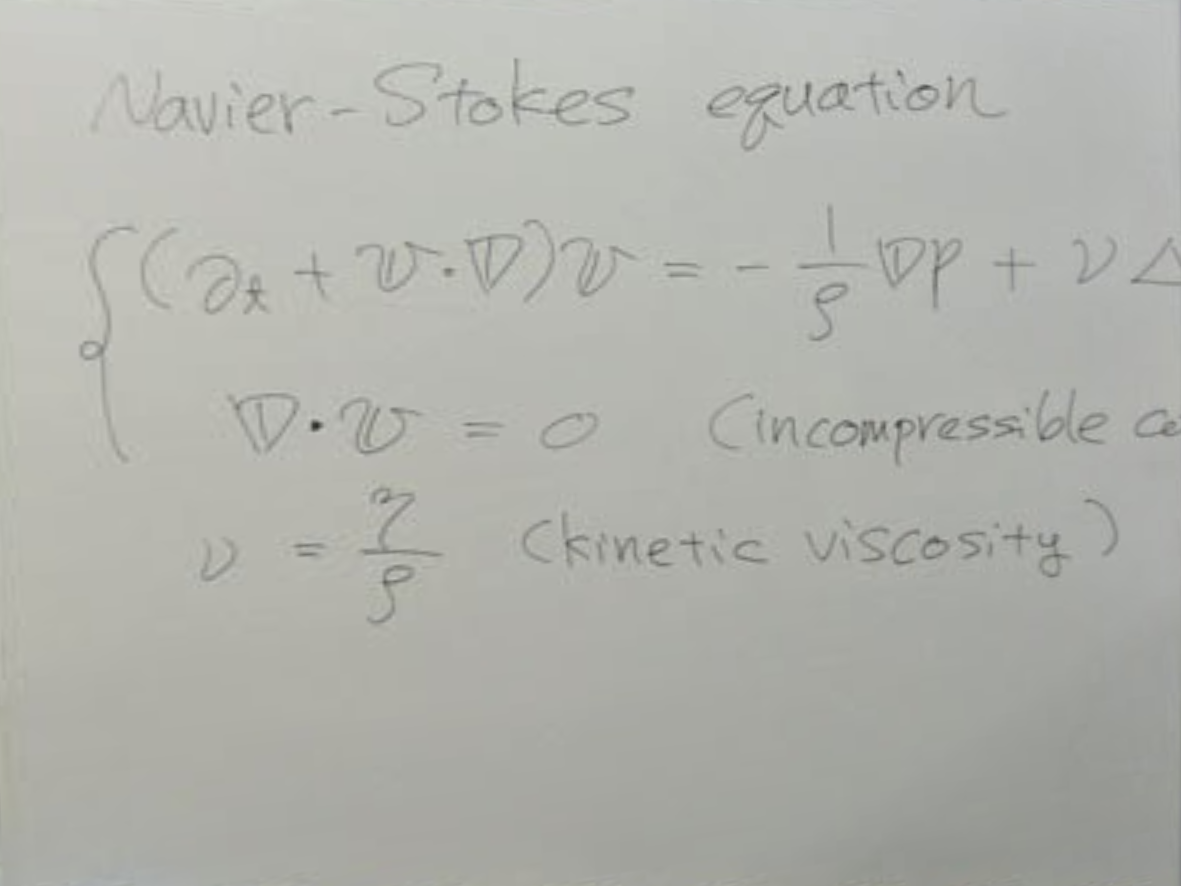 Navier-Stokes equation
(∂t + v·∇)v = - 1/ρ ∇p + ν Δ
∇·v = 0 (incompressible
ν = η/ρ (kinetic viscosity)